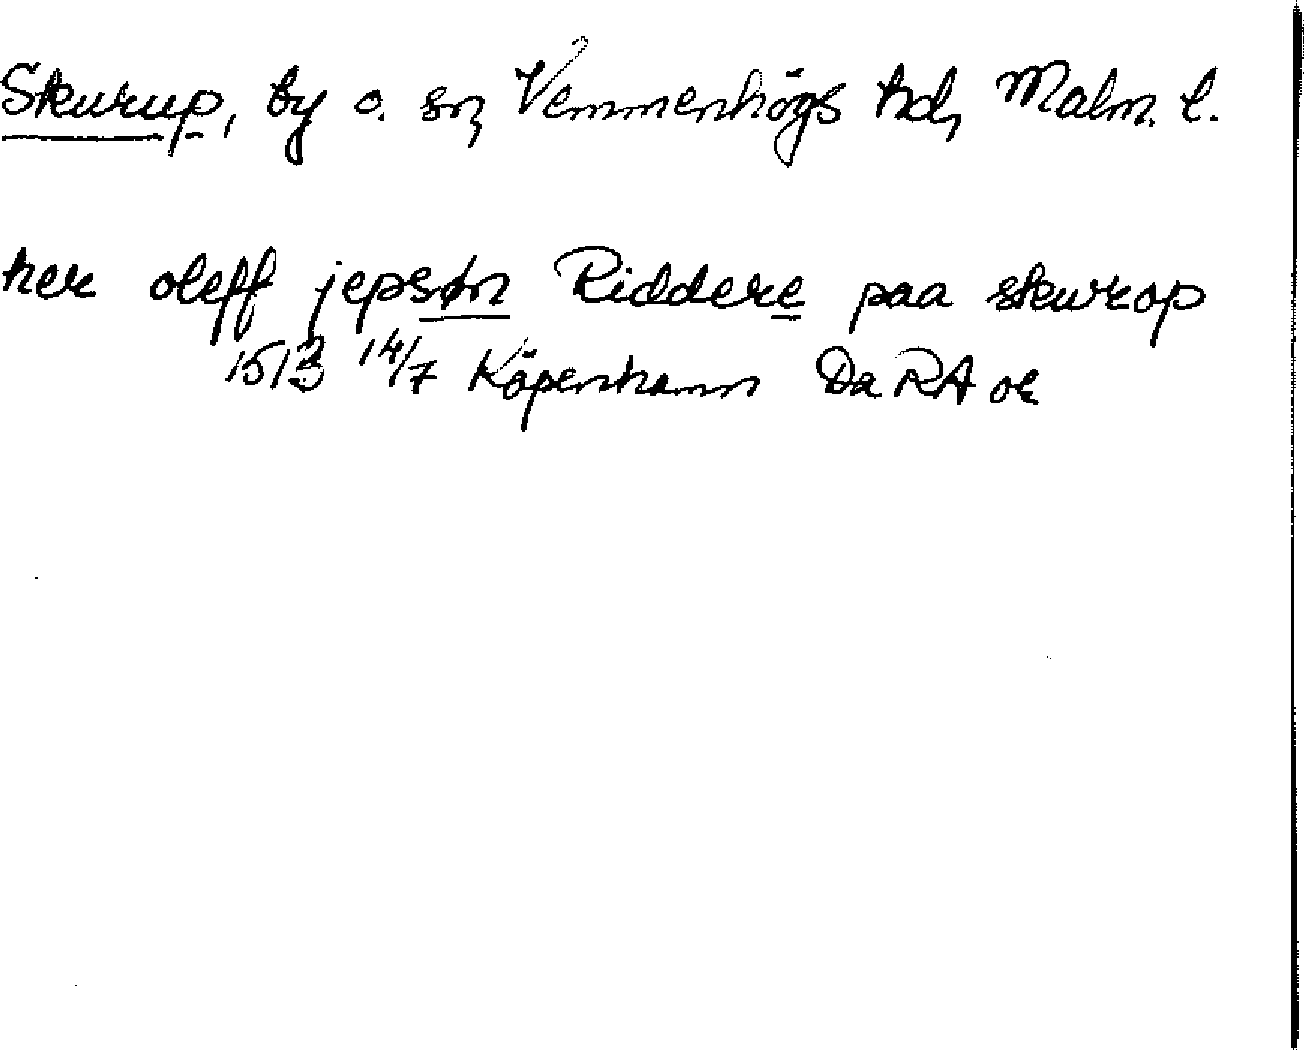 Skurup, by o. sn, Vemmenhögs hd, Malm. l.
her oleff jepsøn Riddere paa skurop
1513 14/7 Köpenhamn DaRA ok